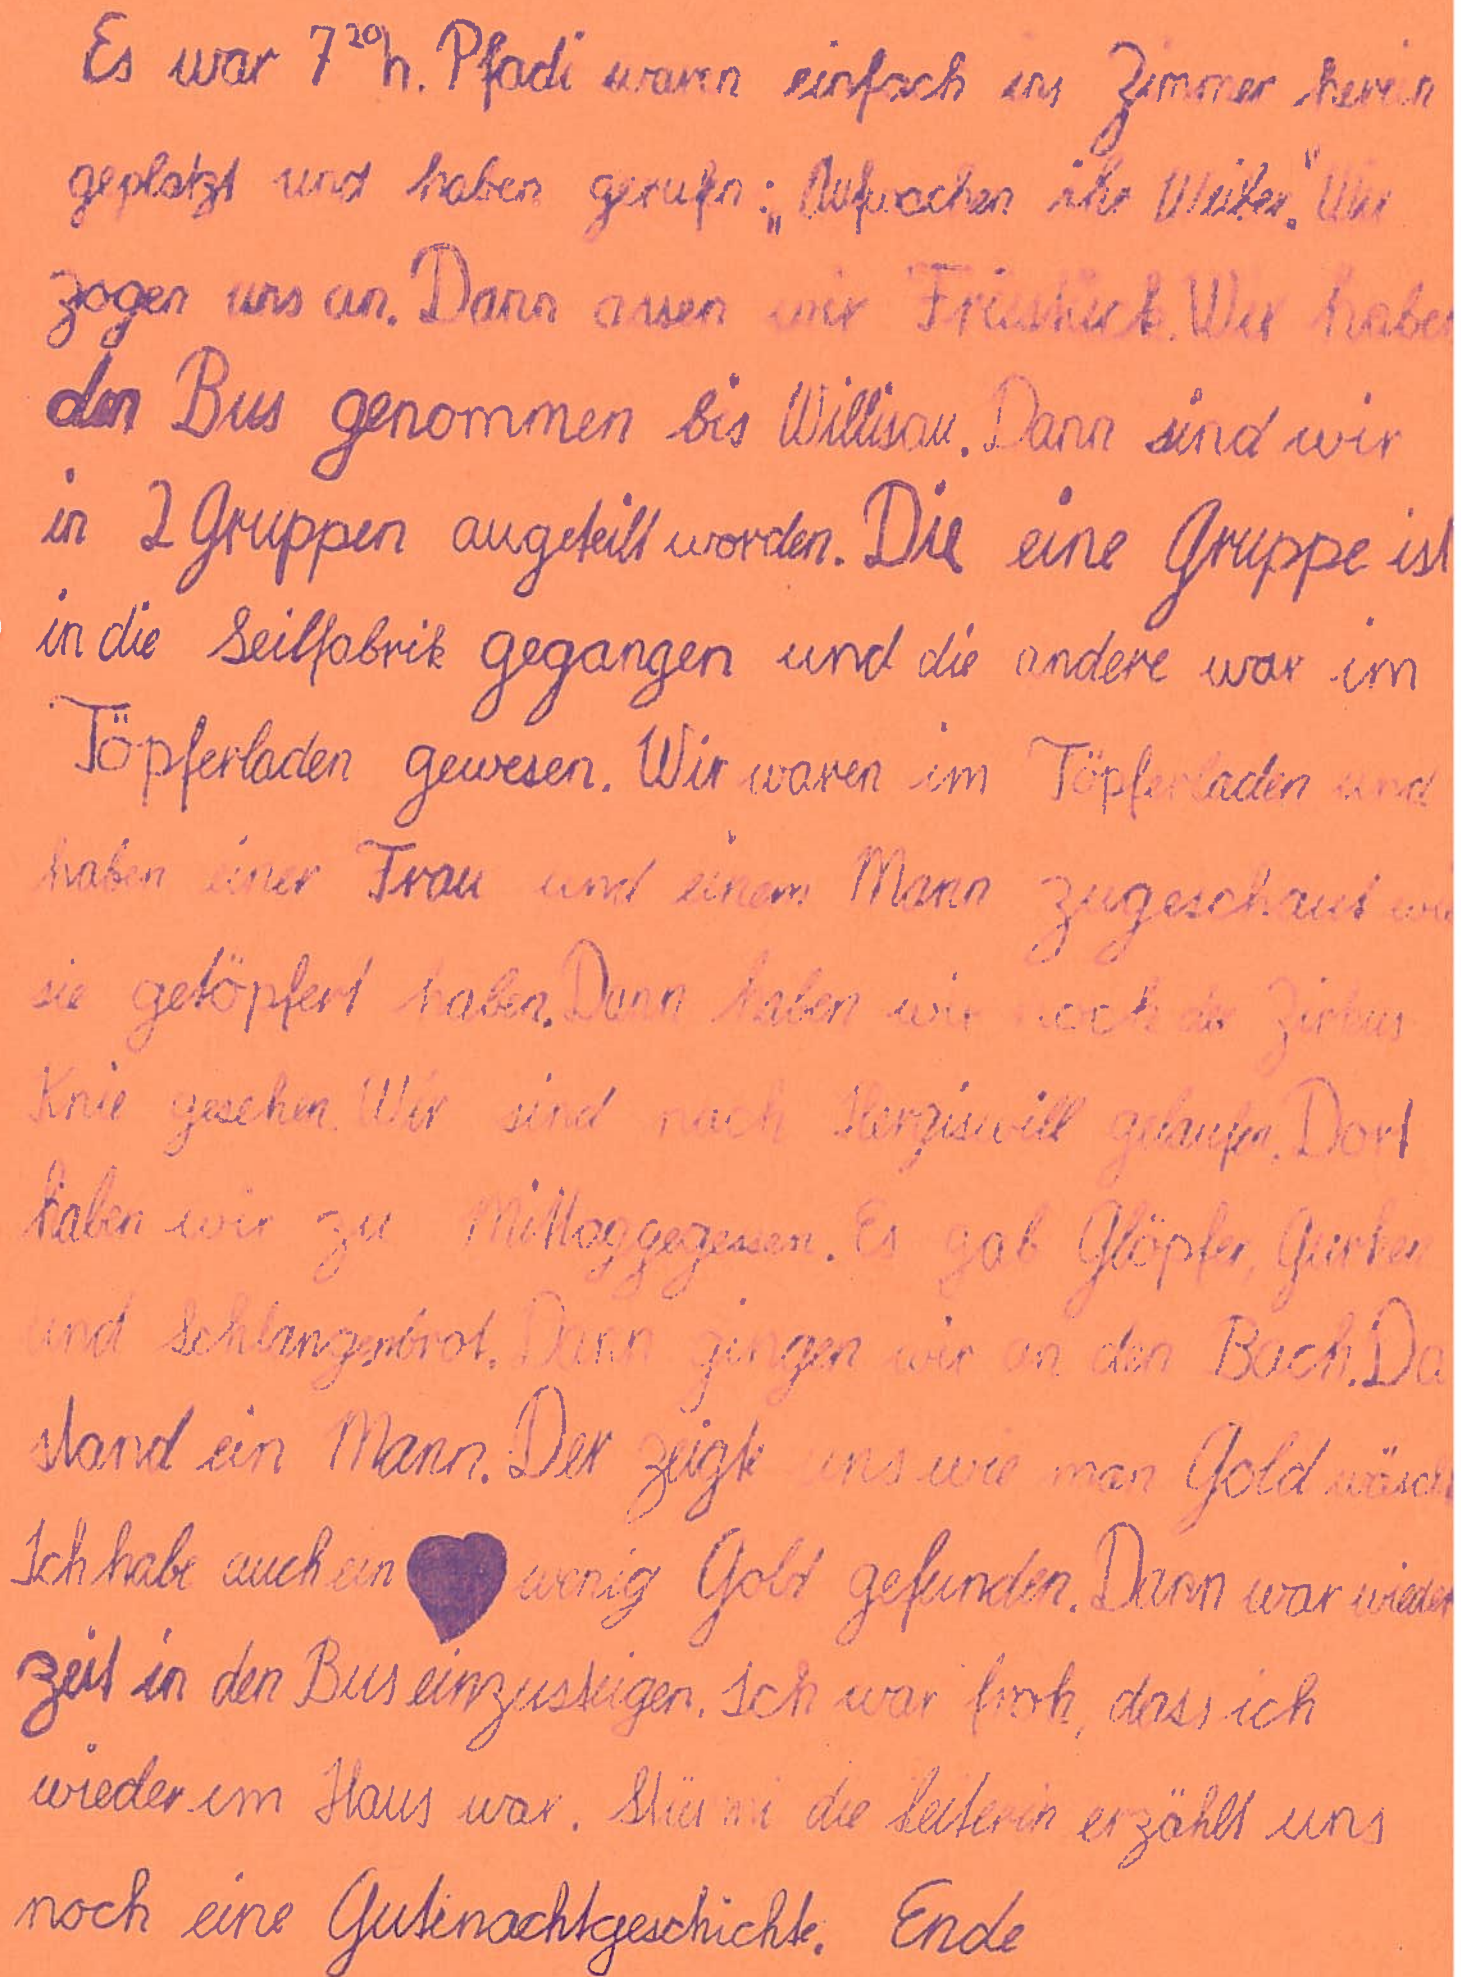 Es war 7²⁰h. Pfadi waren einfach ins Zimmer herein
geplatzt und haben gerufn: „Aufwachen ihr Weiber." Wir
zogen uns an. Dann assen wir Früstück. Wir haben
den Bus genommen bis Willisau. Dann sind wir
in 2 Gruppen augeteilt worden. Die eine Gruppe ist
in die Seilfabrik gegangen und die andere war im
Töpferladen gewesen. Wir waren im Töpferladen und
haben einer Frau und einem Mann zugeschaut wie
sie getöpfert haben. Dann haben wir noch der Zirkus
Knie gesehen. Wir sind nach Hergiswill gelaufen. Dort
haben wir zu Mittaggegessen. Es gab Glöpfer, Gurken
und Schlangenbrot. Dann gingen wir an den Bach. Da
stand ein Mann. Der zeigte uns wie man Gold wäscht
Ich habe auch ein wenig Gold gefunden. Dann war wieder
zeit in den Bus einzusteigen. Ich war froh, dass ich
wieder im Haus war. die Leiterin erzählt uns
noch eine Gutenachtgeschichte. Ende